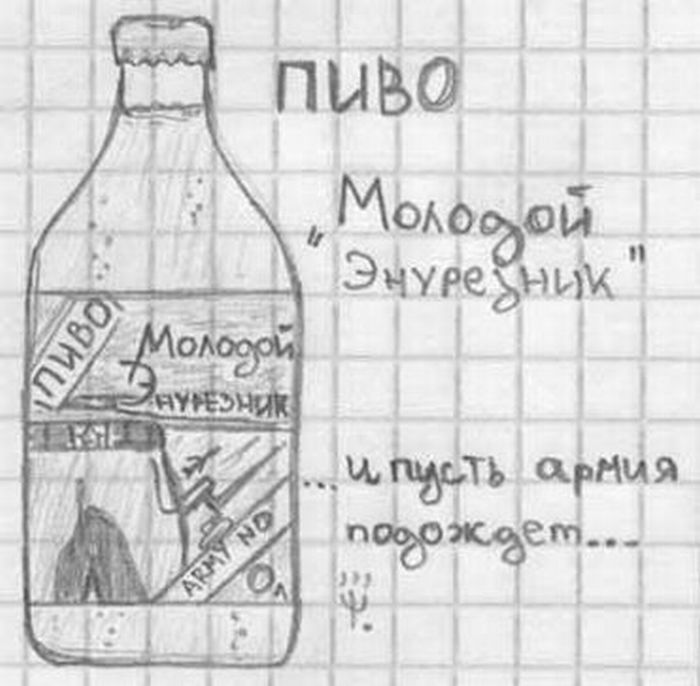 ПИВО
"Молодой
Энурезник"
ПИВО
Молодой
Энурезник
...и пусть армия
подождет...
ARMY NO